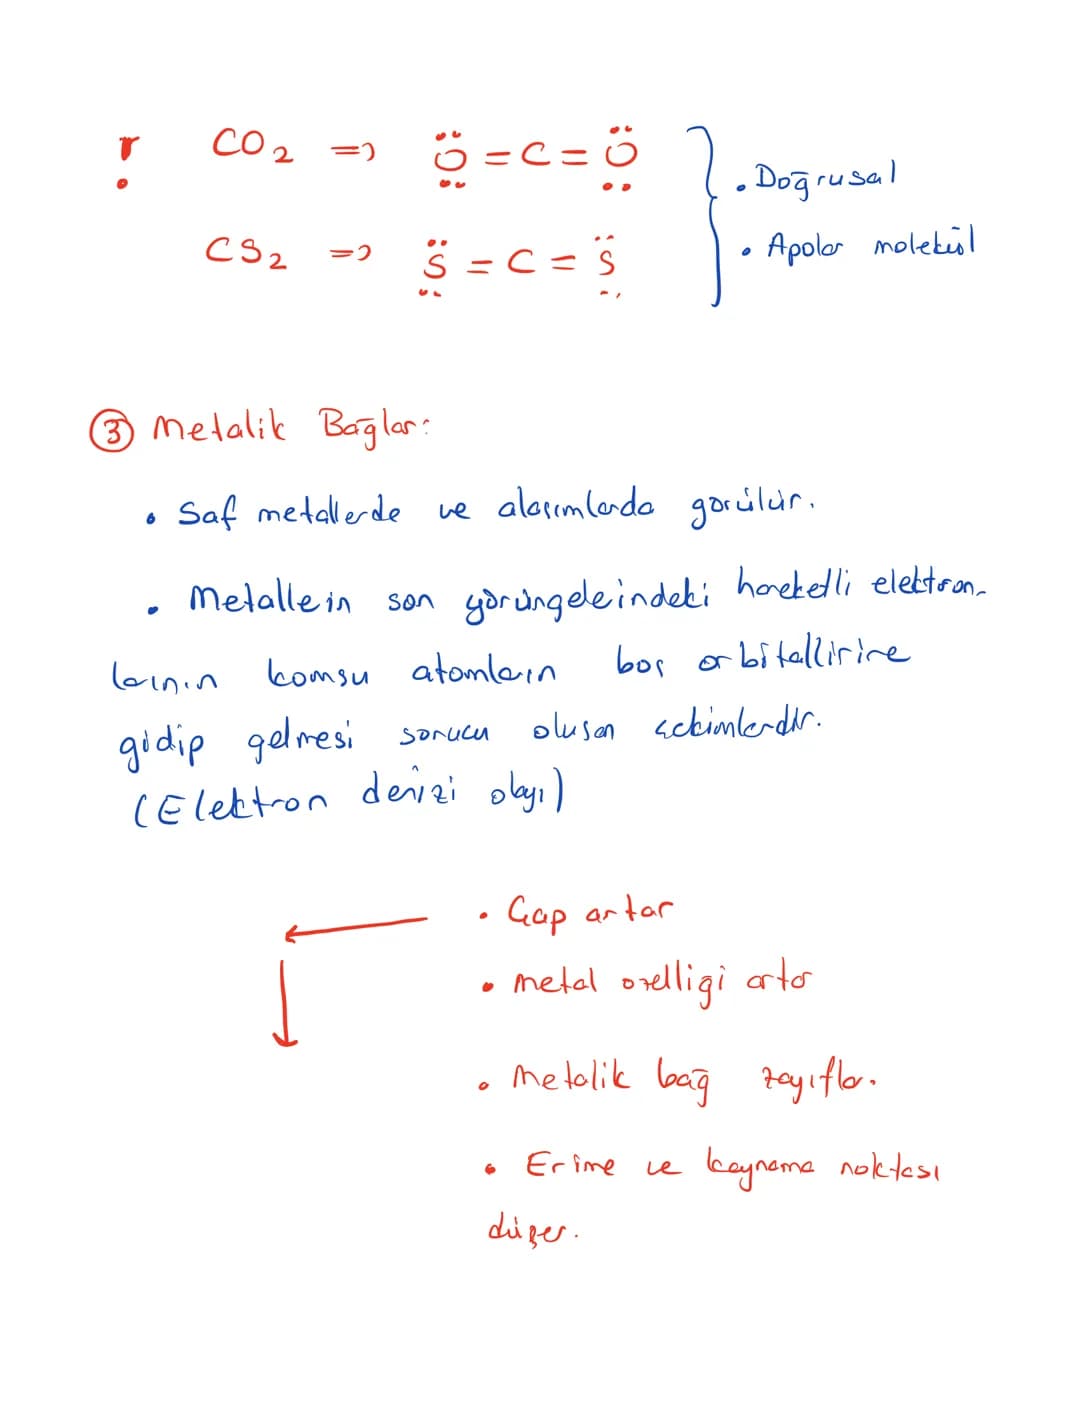 ! CO₂ => Ö = C = Ö
• Doğrusal
CS₂ => S̈ = C = S̈
• Apolar molekül
③ Metalik Bağlar:
• Saf metallerde ve alaşımlarda görülür.
• Metallein son yörüngeleindeki hareketli elektron-
larının komsu atomların boş orbitallirine
gidip gelmesi sonucu olusan çekimlerdir.
(Elektron denizi olayı)
• Çap artar
• Metal ozelligi artar
• Metalik bağ zayıflar.
• Erime ve kaynama noktası
düşer.